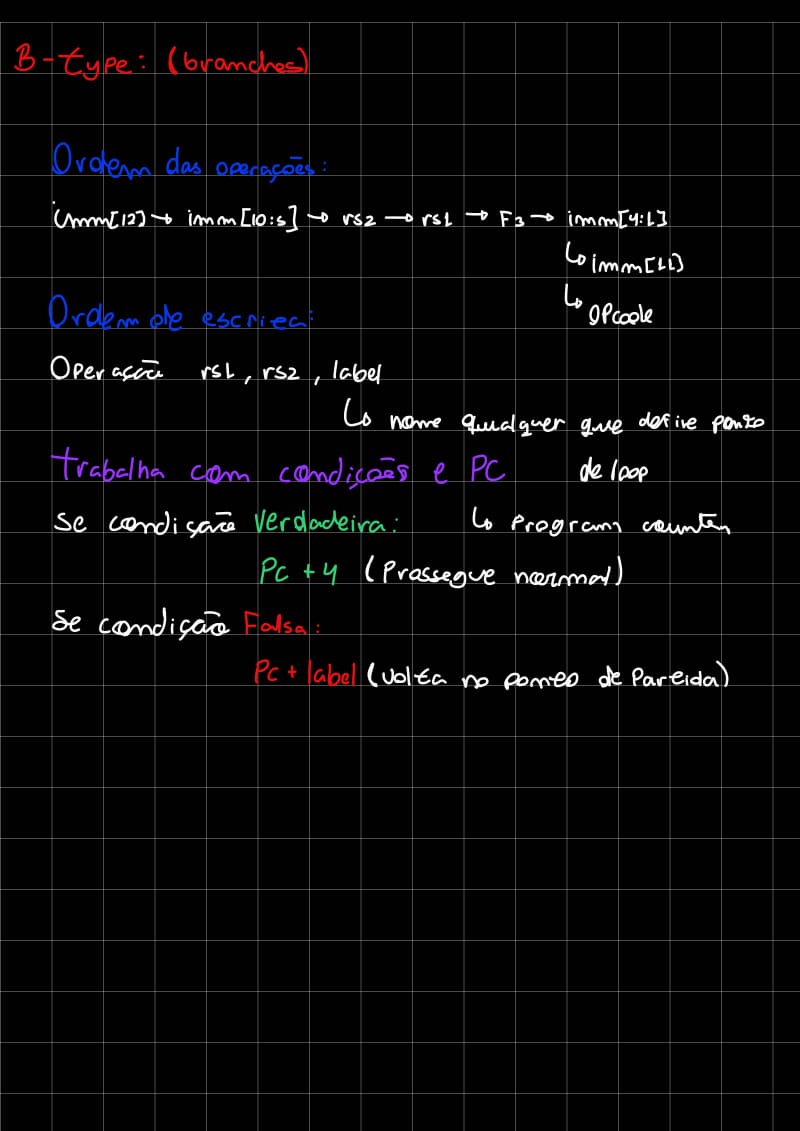 B-type: (branches)
Ordem das operações:
imm[12] → imm[10:5] → rs2 → rs1 → F3 → imm[4:1]
↳ imm[11]
↳ OPcode
Ordem de escrita:
Operação rs1, rs2, label
↳ nome qualquer que define ponto
de loop
trabalha com condições e PC
↳ Program counter
Se condição Verdadeira:
PC + 4 (Prossegue normal)
Se condição Falsa:
PC + label (Volta no ponto de Partida)